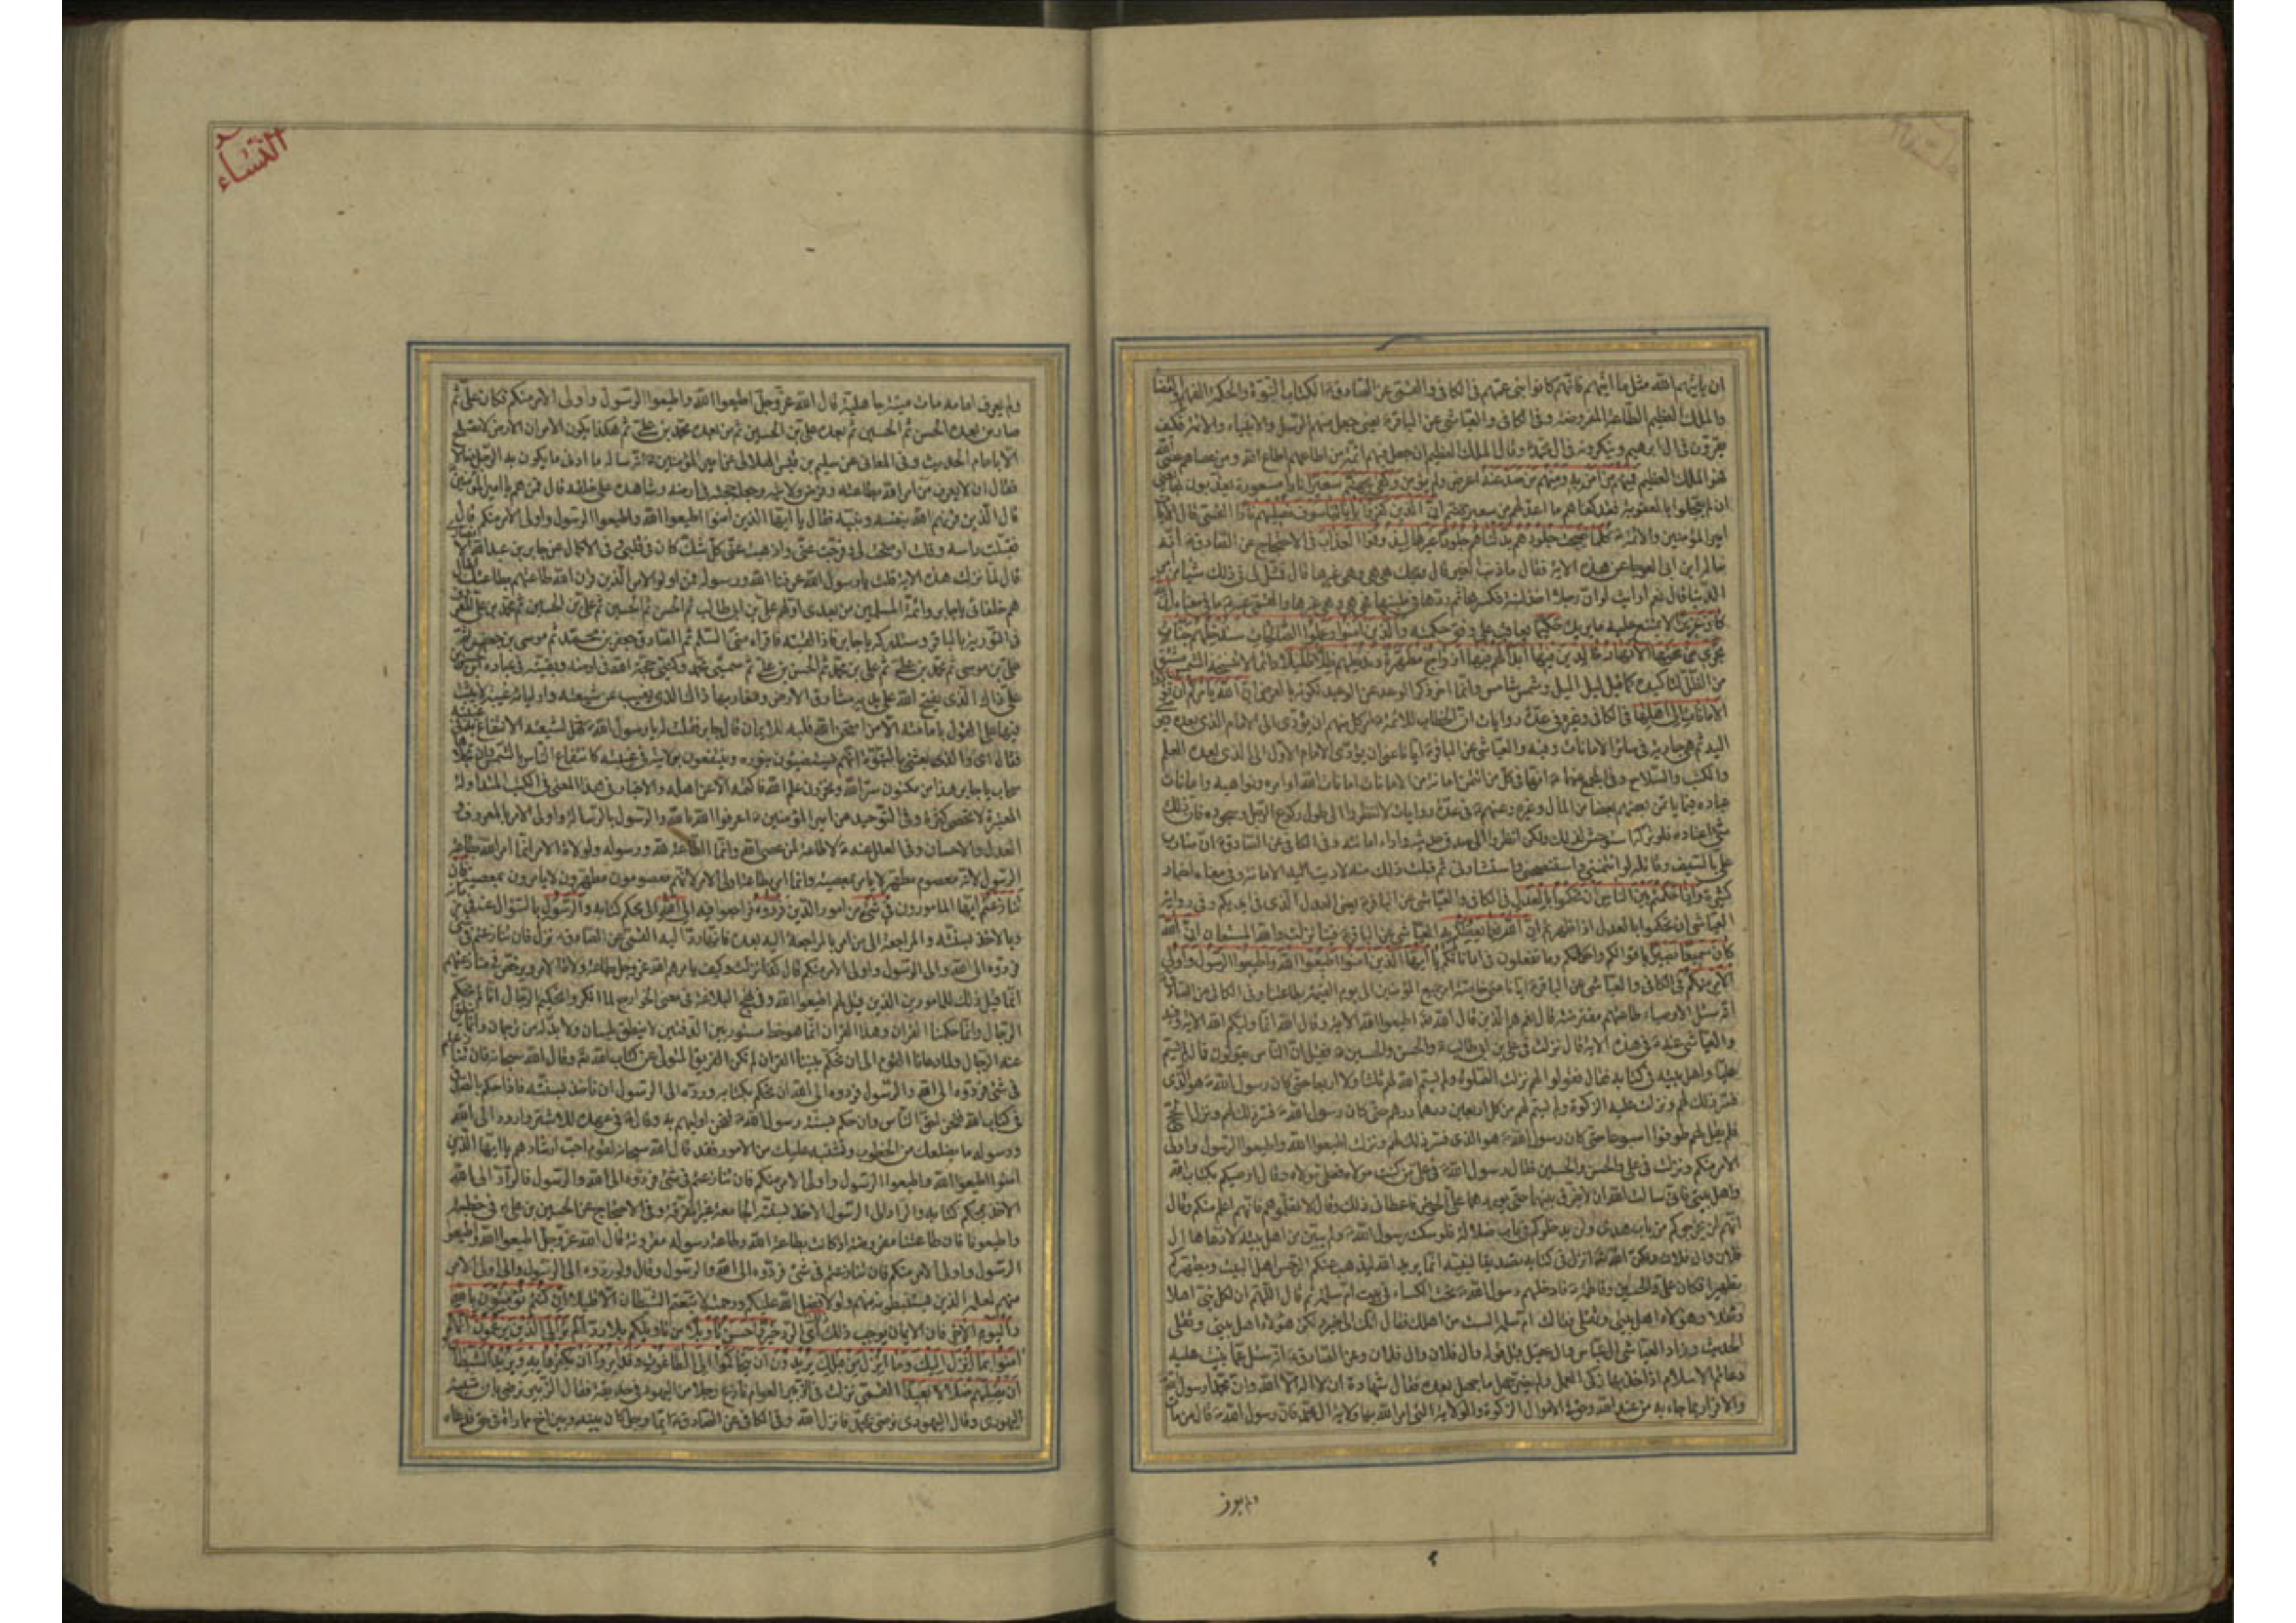 ان يأتيهم الله مثل ما اتيهم فانهم كانوا بنى عمهم فى الكافى والقمى عن الصادق الكتاب النبوة والحكمة الفهم والقضا
والملك العظيم الطاعة المفروضة وفى الكافى والعياشى عن الباقر يعنى جعل منهم الرسل والانبياء والائمة فكيف
يقرون فى ال ابرهيم وينكرونه فى ال محمد وقال الملك العظيم ان جعل فيهم ائمة من اطاعهم اطاع الله ومن عصاهم عصى الله
فهو الملك العظيم فمنهم من آمن به ومنهم من صد عنه اعرض ولم يؤمن وكفى بجهنم سعيرا نارا مسعورة يعذبون بها
ان لم يعجلوا بالعقوبة فقد كفاهم ما اعد لهم من سعير جهنم ان الذين كفروا باياتنا سوف نصليهم نارا القمى قال الايات
امير المؤمنين والائمة كلما نضجت جلودهم بدلناهم جلودا غيرها ليذوقوا العذاب فى الاحتجاج عن الصادق انه
سأله ابن ابى العوجا عن هذه الاية فقال ما ذنب الغير قال ويحك هى هى وهى غيرها قال فمثل لى فى ذلك شيئا من امر
الدنيا قال نعم ارايت لو ان رجلا اخذ لبنة فكسرها ثم ردها فى ملبنها فهى هى وهى غيرها والقمى عنه ما فى معناه ان الله
كان عزيزا لا يمتنع عليه ما يريد حكيما يعاقب على وفق حكمته والذين آمنوا وعملوا الصالحات سندخلهم جنات
تجرى من تحتها الانهار خالدين فيها ابدا لهم فيها ازواج مطهرة وندخلهم ظلا ظليلا دائما لا تنسخه الشمس مشتق
من الظل لتأكيده كما قيل ليل اليل وشمس شامس وانما اخر ذكر الوعد عن الوعيد لكونه بالعرض ان الله يأمركم ان تؤدوا
الامانات الى اهلها فى الكافى وغيره فى عدة روايات ان الخطاب للائمة امر كل منهم ان يؤدى الى الامام الذى بعده ويوصى
اليه ثم هى جارية فى سائر الامانات وفيه والعياشى عن الباقر ايانا عنى ان يؤدى الامام الاول الى الذى بعده العلم
والكتب والسلاح وفى المجمع عنهما انها فى كل من ائتمن امانة من الامانات امانات الله اوامره ونواهيه وامانات
عباده فيما يأتمن بعضهم بعضا من المال وغيره وعنهم فى عدة روايات لا تنظروا الى طول ركوع الرجل وسجوده فان ذلك
شئ اعتاده فلو تركه استوحش لذلك ولكن انظروا الى صدق حديثه واداء امانته وفى الكافى عن الصادق ان ضارب
على بالسيف وقاتله لو ائتمننى واستنصحنى واستشارنى ثم قبلت ذلك منه لاديت اليه الامانة وفى معناه اخبار
كثيرة واذا حكمتم بين الناس ان تحكموا بالعدل فى الكافى والعياشى عن الباقر يعنى العدل الذى فى ايديكم وفى رواية
العياشى ان تحكموا بالعدل اذا ظهرتم ان الله نعما يعظكم به العياشى عن الباقر فينا نزلت والله المستعان ان الله
كان سميعا بصيرا باقوالكم واحكامكم وما تفعلون فى اماناتكم يا ايها الذين آمنوا اطيعوا الله واطيعوا الرسول واولى
الامر منكم فى الكافى والعياشى عن الباقر ايانا عنى خاصة امر جميع المؤمنين الى يوم القيمة بطاعتنا وفى الكافى عن الصادق
انه سئل الاوصياء طاعتهم مفترضة قال نعم هم الذين قال الله اطيعوا الله الاية وقال الله انما وليكم الله الاية وفيه
والعياشى عنه فى هذه الاية قال نزلت فى على بن ابى طالب والحسن والحسين فقيل ان الناس يقولون فما له لم يسم
عليا واهل بيته فى كتابه فقال فقولوا لهم نزلت الصلوة ولم يسم الله لهم ثلثا ولا اربعا حتى كان رسول الله هو الذى
فسر ذلك لهم ونزلت عليه الزكوة ولم يسم لهم من كل اربعين درهما درهم حتى كان رسول الله فسر ذلك لهم ونزل الحج
فلم يقل لهم طوفوا اسبوعا حتى كان رسول الله هو الذى فسر ذلك لهم ونزلت اطيعوا الله واطيعوا الرسول واولى
الامر منكم ونزلت فى على والحسن والحسين فقال رسول الله فى على من كنت مولاه فعلى مولاه وقال اوصيكم بكتاب الله
واهل بيتى فانى سالت الله ان لا يفرق بينهما حتى يوردهما على الحوض فاعطانى ذلك وقال لا تعلموهم فانهم اعلم منكم وقال
انهم لن يخرجوكم من باب هدى ولن يدخلوكم فى باب ضلالة فلو سكت رسول الله ولم يبين من اهل بيته لادعاها ال
فلان وال فلان ولكن الله انزل فى كتابه تصديقا لنبيه انما يريد الله ليذهب عنكم الرجس اهل البيت ويطهركم
تطهيرا فكان على والحسن والحسين وفاطمة فادخلهم رسول الله تحت الكساء فى بيت ام سلمة ثم قال اللهم ان لكل نبى اهلا
وثقلا وهؤلاء اهل بيتى وثقلى فقالت ام سلمة الست من اهلك فقال انك الى خير ولكن هؤلاء اهل بيتى وثقلى
الحديث وزاد العياشى ال عباس وال عقيل قبل قوله وال فلان وال فلان وعن الصادق انه سئل عما بنيت عليه
دعائم الاسلام اذا اخذ بها زكى العمل ولم يضر جهل ما جهل بعده فقال شهادة ان لا اله الا الله وان محمدا رسول الله
والاقرار بما جاء به من عند الله وحق فى الاموال الزكوة والولاية التى امر الله بها ولاية ال محمد فان رسول الله قال من مات
النساء
ولم يعرف امامه مات ميتة جاهلية قال الله عز وجل اطيعوا الله واطيعوا الرسول واولى الامر منكم فكان على ثم
صار من بعده الحسن ثم الحسين ثم بعده على بن الحسين ثم من بعده محمد بن على ثم هكذا يكون الامر ان الارض لا تصلح
الا بامام الحديث وفى المعانى عن سليم بن قيس الهلالى عن امير المؤمنين انه سأله ما ادنى ما يكون به الرجل ضالا
فقال ان لا يعرف من امر الله بطاعته وفرض ولايته وجعل حجته فى ارضه وشاهده على خلقه قال فمن هم يا امير المؤمنين
قال الذين قرنهم الله بنفسه ونبيه فقال يا ايها الذين آمنوا اطيعوا الله واطيعوا الرسول واولى الامر منكم قال
فقبلت راسه وقلت اوضحت لى وفرجت عنى واذهبت عنى كل شك كان فى قلبى وفى الاكمال عن جابر بن عبد الله
قال لما نزلت هذه الاية قلت يا رسول الله عرفنا الله ورسوله فمن اولو الامر الذين قرن الله طاعتهم بطاعتك فقال
هم خلفائى يا جابر وائمة المسلمين من بعدى اولهم على بن ابى طالب ثم الحسن ثم الحسين ثم على بن الحسين ثم محمد بن على المعروف
فى التورية بالباقر وستدركه يا جابر فاذا لقيته فاقرأه منى السلم ثم الصادق جعفر بن محمد ثم موسى بن جعفر ثم
على بن موسى ثم محمد بن على ثم على بن محمد ثم الحسن بن على ثم سميى محمد وكنيى حجة الله فى ارضه وبقيته فى عباده ابن الحسن بن
على ذاك الذى يفتح الله على يديه مشارق الارض ومغاربها ذاك الذى يغيب عن شيعته واوليائه غيبة لا يثبت
فيها على القول بامامته الا من امتحن الله قلبه للايمان قال جابر فقلت له يا رسول الله فهل لشيعته الانتفاع به فى غيبته
فقال اى والذى بعثنى بالنبوة انهم يستضيئون بنوره وينتفعون بولايته فى غيبته كانتفاع الناس بالشمس وان تجلاها
سحاب يا جابر هذا من مكنون سر الله ومخزون علم الله فاكتمه الا عن اهله والاخبار فى هذا المعنى فى الكتب المتداولة
المعتبرة لا تحصى كثرة وفى التوحيد عن امير المؤمنين اعرفوا الله بالله والرسول بالرسالة واولى الامر بالمعروف و
العدل والاحسان وفى العلل عنه لا طاعة لمن عصى الله وانما الطاعة لله ورسوله ولولاة الامر انما امر الله بطاعة
الرسول لانه معصوم مطهر لا يأمر بمعصية وانما امر بطاعة اولى الامر لانهم معصومون مطهرون لا يأمرون بمعصية فان
تنازعتم ايها المأمورون فى شئ من امور الدين فردوه فراجعوا فيه الى الله الى محكم كتابه والرسول بالسؤال عنه فى زمانه
وبالاخذ بسنته والمراجعة الى من امر بالمراجعة اليه بعده فانها رد اليه القمى عن الصادق نزل فان تنازعتم فى شئ
فردوه الى الله والى الرسول واولى الامر منكم قال كذا نزلت وكيف يأمرهم الله عز وجل بطاعة ولاة الامر ويرخص فى منازعتهم
انما قيل ذلك للمأمورين الذين قيل لهم اطيعوا الله وفى نهج البلاغة فى معنى الخوارج لما انكر واتحكيم الرجال انا لم نحكم
الرجال وانما حكمنا القرآن وهذا القرآن انما هو خط مستور بين الدفتين لا ينطق بلسان ولا بد له من ترجمان وانما ينطق
عنه الرجال ولما دعانا القوم الى ان نحكم بيننا القرآن لم نكن الفريق المتولى عن كتاب الله وقال الله سبحانه فان تنازعتم
فى شئ فردوه الى الله والرسول فردوه الى الله ان نحكم بكتابه ورده الى الرسول ان نأخذ بسنته فاذا حكم بالصدق
فى كتاب الله فنحن احق الناس وان حكم بسنة رسول الله فنحن اولهم به وقال فى عهده للاشتر واردد الى الله
ورسوله ما يضلعك من الخطوب ويشتبه عليك من الامور فقد قال الله سبحانه لقوم احب ارشادهم يا ايها الذين
آمنوا اطيعوا الله واطيعوا الرسول واولى الامر منكم فان تنازعتم فى شئ فردوه الى الله والرسول فالراد الى الله
الاخذ بمحكم كتابه والراد الى الرسول الاخذ بسنته الجامعة غير المفرقة وفى الاحتجاج عن الحسين بن على فى خطبته
واطيعونا فان طاعتنا مفروضة اذ كانت بطاعة الله وطاعة رسوله مقرونة قال الله عز وجل اطيعوا الله واطيعوا
الرسول واولى الامر منكم فان تنازعتم فى شئ فردوه الى الله والرسول وقال ولو ردوه الى الرسول والى اولى الامر
منهم لعلمه الذين يستنبطونه منهم ولولا فضل الله عليكم ورحمته لاتبعتم الشيطان الا قليلا ان كنتم تؤمنون بالله
واليوم الاخر فان الايمان يوجب ذلك ذلك اى الرد خير واحسن تأويلا من تأويلكم بلا رد الم تر الى الذين يزعمون انهم
آمنوا بما انزل اليك وما انزل من قبلك يريدون ان يتحاكموا الى الطاغوت وقد امروا ان يكفروا به ويريد الشيطان
ان يضلهم ضلالا بعيدا القمى نزلت فى الزبير بن العوام نازع رجلا من اليهود فى حديقة فقال الزبير نرضى بابن شيبة
اليهودى وقال اليهودى نرضى بمحمد فانزل الله وفى الكافى عن الصادق ايما رجل كان بينه وبين اخ مماراة فى حق فدعاه